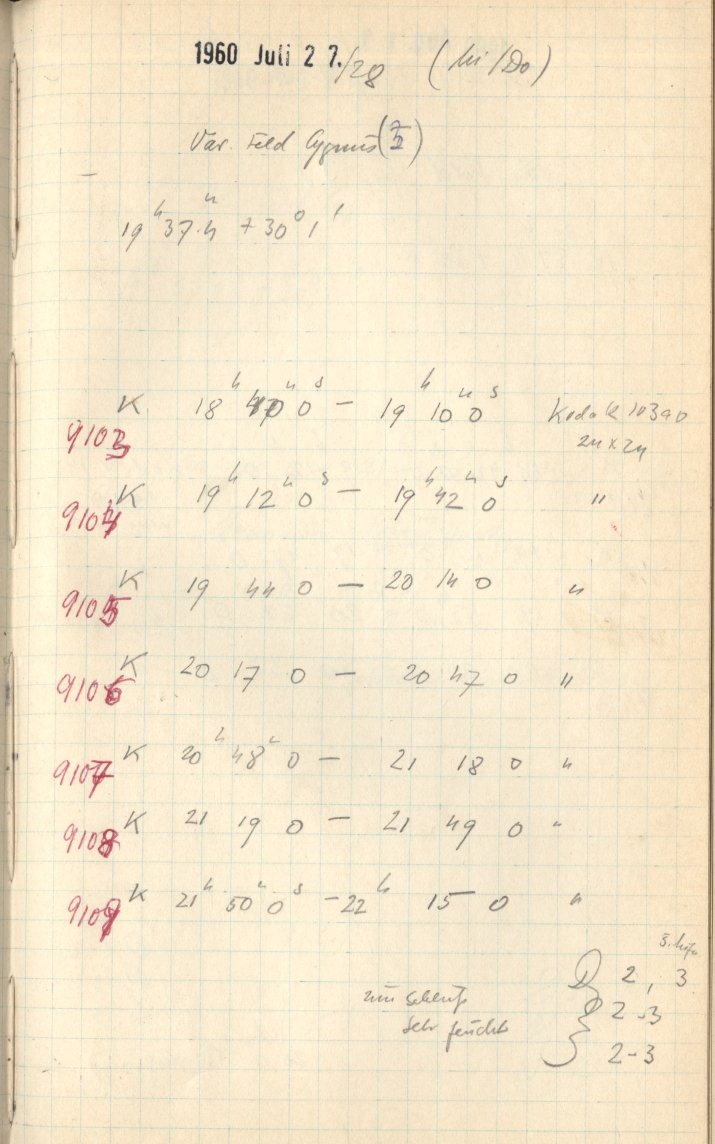 1960 Juli 27./28 (hi/Do)
Var. Feld Cygnus
19ʰ37.4 +30°1'
9103 K 18ʰ 40ᵐ 0ˢ — 19ʰ 10ᵐ 0ˢ Kodak 103a0
24 x 24
9104 K 19ʰ 12ᵐ 0ˢ — 19ʰ 42ᵐ 0ˢ "
9105 K 19 44 0 — 20 14 0 "
9106 K 20 17 0 — 20 47 0 "
9107 K 20ʰ 48ᵐ 0 — 21 18 0 "
9108 K 21 19 0 — 21 49 0 "
9109 K 21ʰ 50ᵐ 0ˢ — 22ʰ 15 0 "
2, 3
zum Schluß 2-3
sehr feucht
2-3